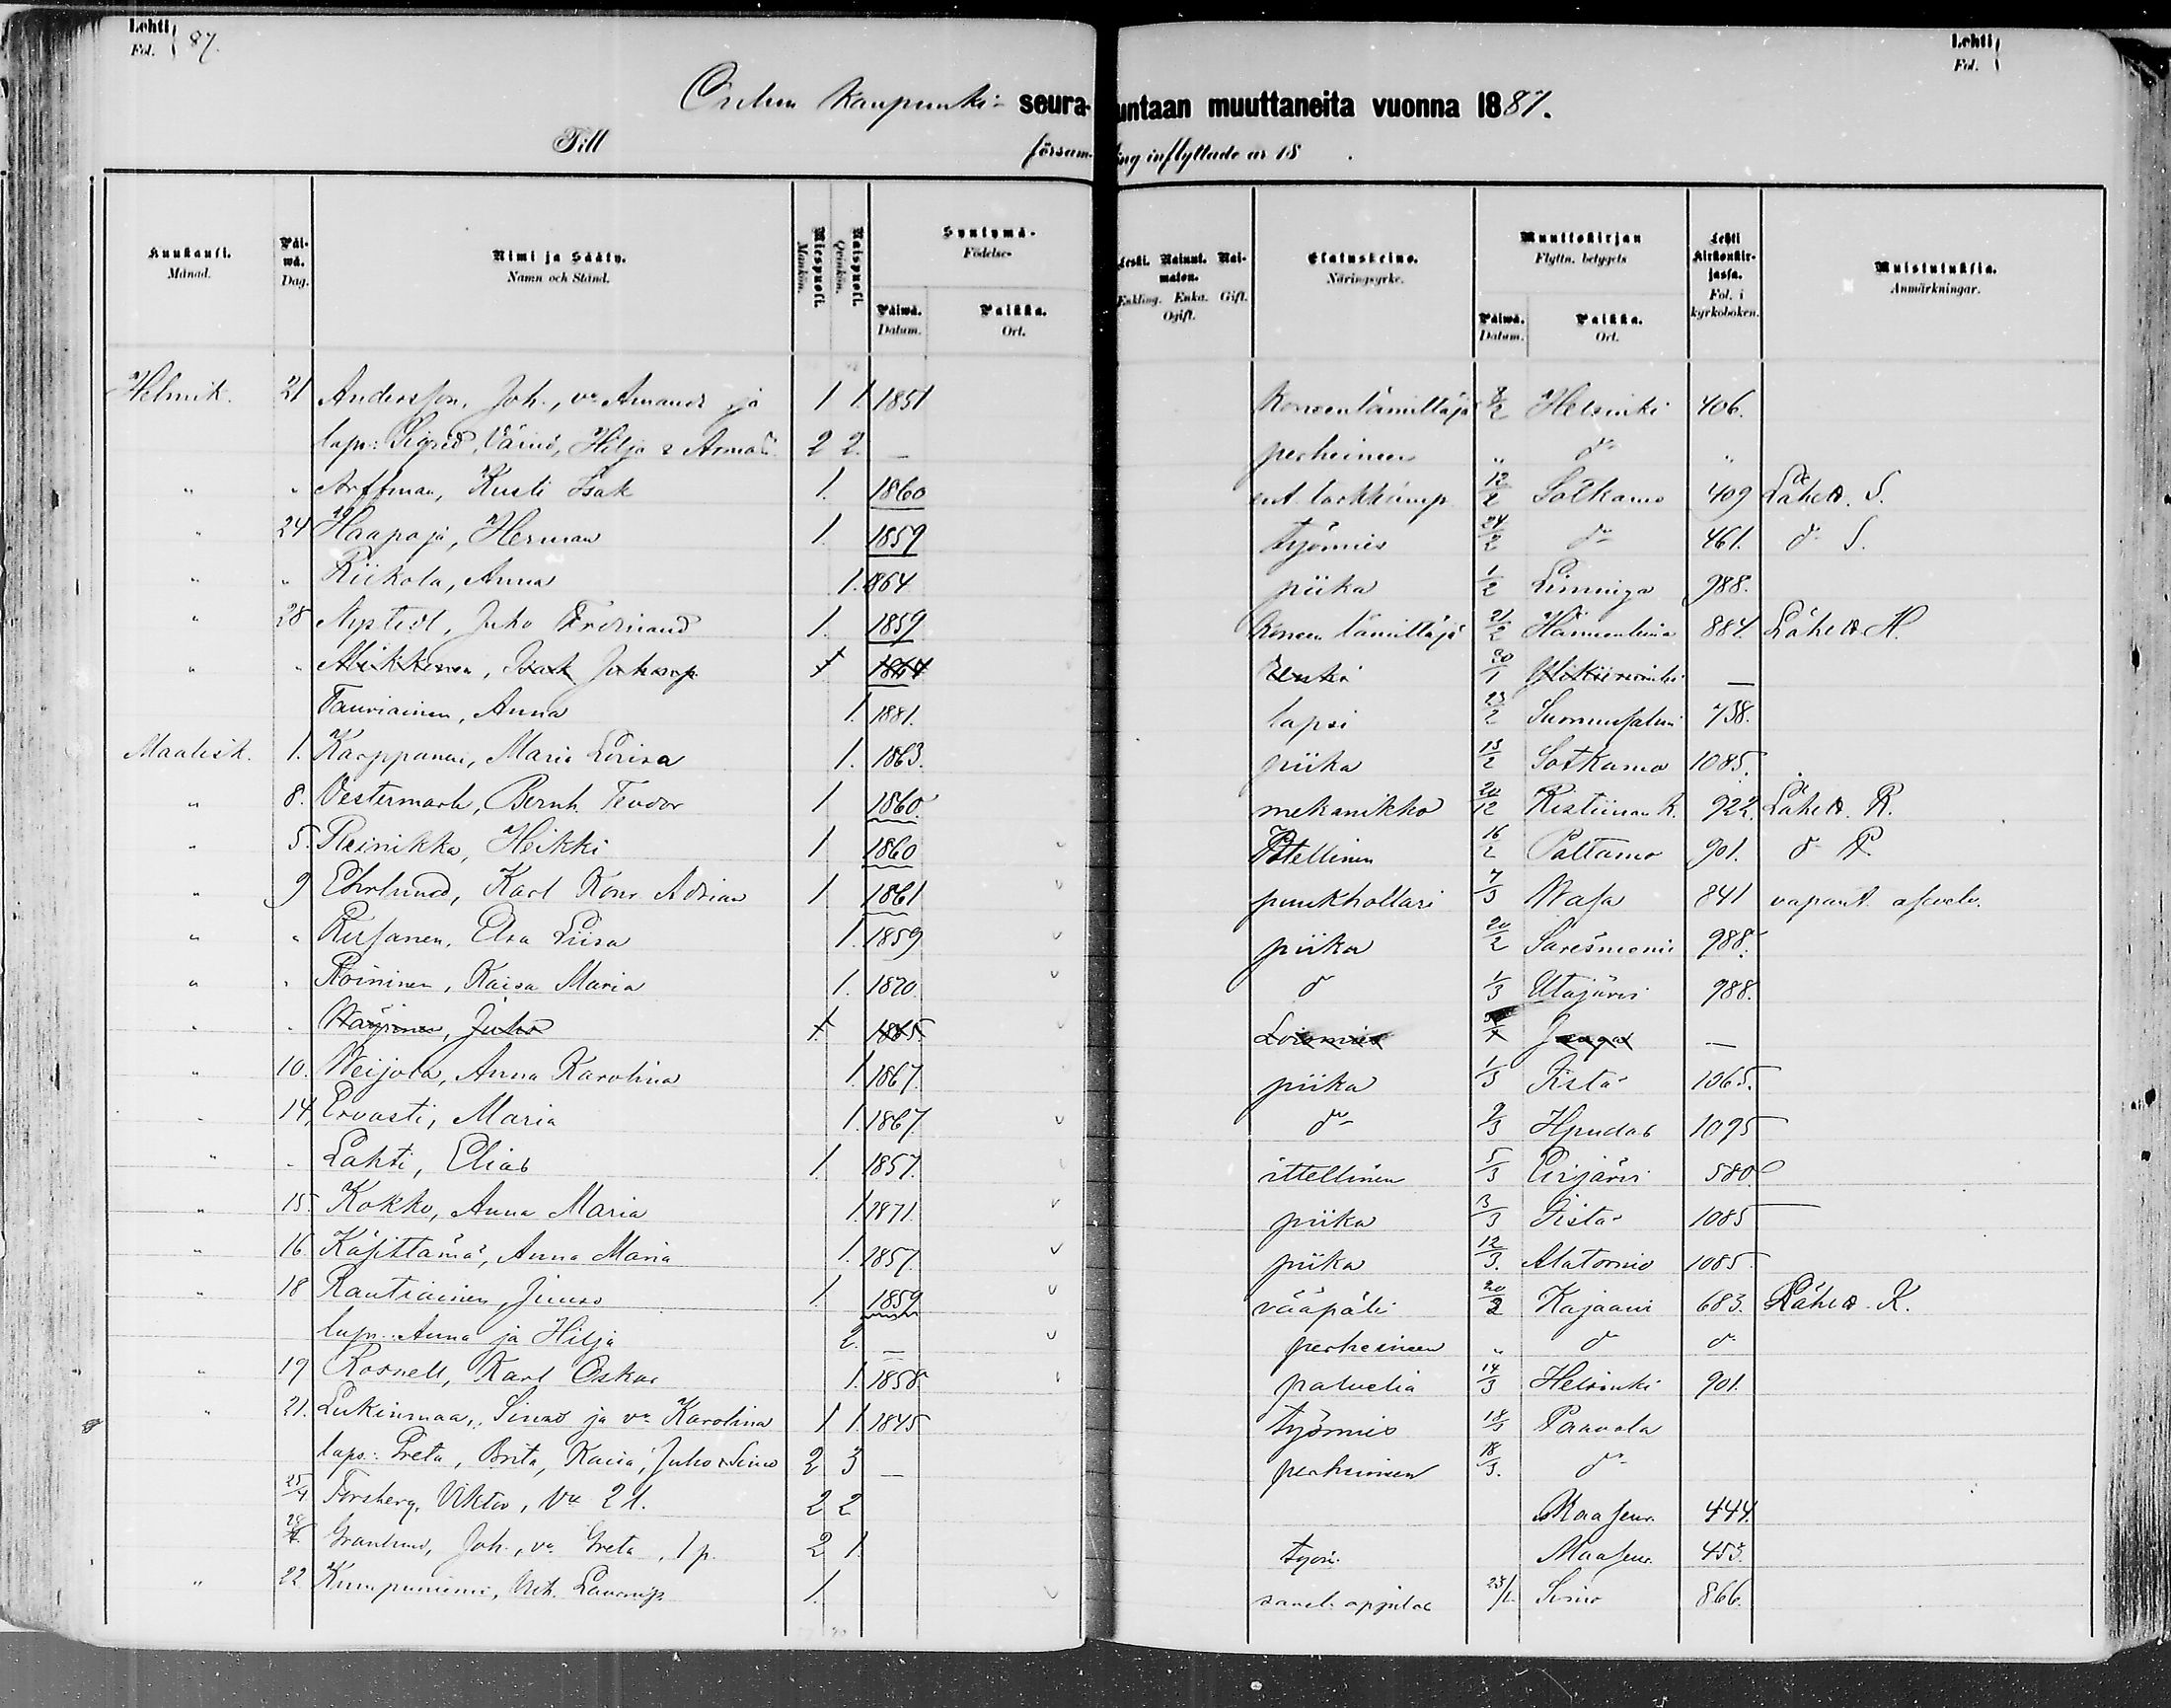 Lehti Fol. 87. Lehti Fol.
Oulun kaupunki- seura- untaan muuttaneita vuonna 1887.
Till försam- ing inflyttade år 18 .
Kuukausi. Månad. Päi-wä. Dag. Nimi ja Sääty. Namn och Stånd. Miespuoli. Mankön. Naispuoli. Qvinkön. Syntymä- Födelse- Päiwä. Datum. Paikka. Ort. Leski. Nainut. Nai-maton. Enkling. Enka. Gift. Ogift. Elatuskeino. Näringsyrke. Muuttokirjan Flyttn. betygets Päiwä. Datum. Paikka. Ort. Lehti Kirkonkir-jassa. Fol. i kyrkoboken. Muistutuksia. Anmärkningar.
Helmik. 21 Andersson, Joh., va Amanda ja 1 1. 1851 Koneenlämittäjä 8/2 Helsinki 406.
laps: Sigrid, Väinö, Hilja & 2 2. — perheineen " do "
" " Arffman, Kusti Isak 1. 1860 12/2 Sotkamo 409 Lähet. S.
" 24 Haapoja, Herman 1. 1859 työmies 24/2 do 461. do S.
" " Riikola, Anna 1. 1864 piika 1/2 Liminga 988.
" 28 Nystedt, Juho Ferdinand 1. 1859 Koneen lämittäjä 21/2 Hämeenlinna 884 Lähet. H.
" " Mikkonen, Isak Juhonp. 1 1864 renki 30/1 Ylikiiminki —
Tauriainen, Anna 1. 1881. lapsi 23/2 Suomussalmi 758.
Maalisk. 1. Karppanen, Maria Loviisa 1. 1863. piika 13/2 Sotkamo 1085.
" 8. Vestermark, Bernh. Teodor 1 1860. mekanikko 20/12 Kristiinan k. 922. Lähet. K.
" 5. Reinikka, Heikki 1 1860 Itellinen 16/2 Paltamo 901. do P.
" 9 Ehrlund, Karl Konr Adrian 1 1861 puukhollari 7/3 Wasa 841 vapaut. asevelv.
" " Russanen, Elsa Liisa 1. 1859 piika 20/2 Säresniemi 988.
" " Roininen, Kaisa Maria 1. 1870. do 1/3 Utajärvi 988.
" " Juho 1 1865. Loismies —
" 10. Weijola, Anna Karolina 1. 1867. piika 1/3 Iistä 1065.
" 14. Ervasti, Maria 1. 1867. do 9/3 Hpudas 1095
" " Lahti, Elias 1. 1857. ittellinen 5/3 Evijärvi 580.
" 15. Kokko, Anna Maria 1. 1871. piika 3/3 Iistä 1085
" 16. Käsittämä, Anna Maria 1. 1857. piika 12/3. Alatornio 1085.
" 18 Rautiainen, Junno 1. 1859 vääpäli 20/2 Kajaani 683. Lähet. K.
laps. Anna ja Hilja 2. — perheineen " do do
" 19 Rosnell, Karl Oskar 1. 1858. palvelia 14/3 Helsinki 901.
" 21. Lukinmaa, Simo ja va Karolina 1 1. 1845 työmies 18/3 Paavola
laps: Greta, Brita, Kaisa, Juho & Simo 2 3 — perheineen 18/3. do
25/4 Forsberg, Viktor, va 2 l. 2 2 Maaseur. 444.
28/4. Granlund, Joh., va Greta, 1 p. 2 1. työm. Maaseur. 453.
" 22 Kumpuniemi, 1. Simo 866.